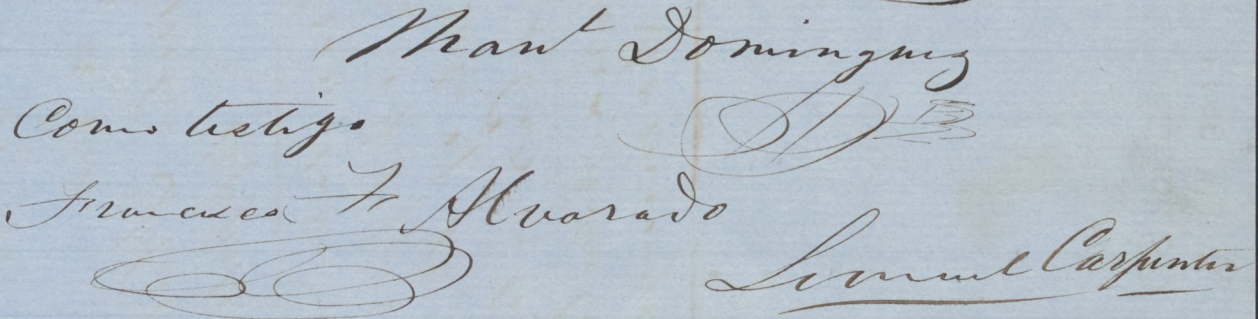 Manl Dominguez
Como testigo
Francisco F Alvarado
Lemuel Carpenter